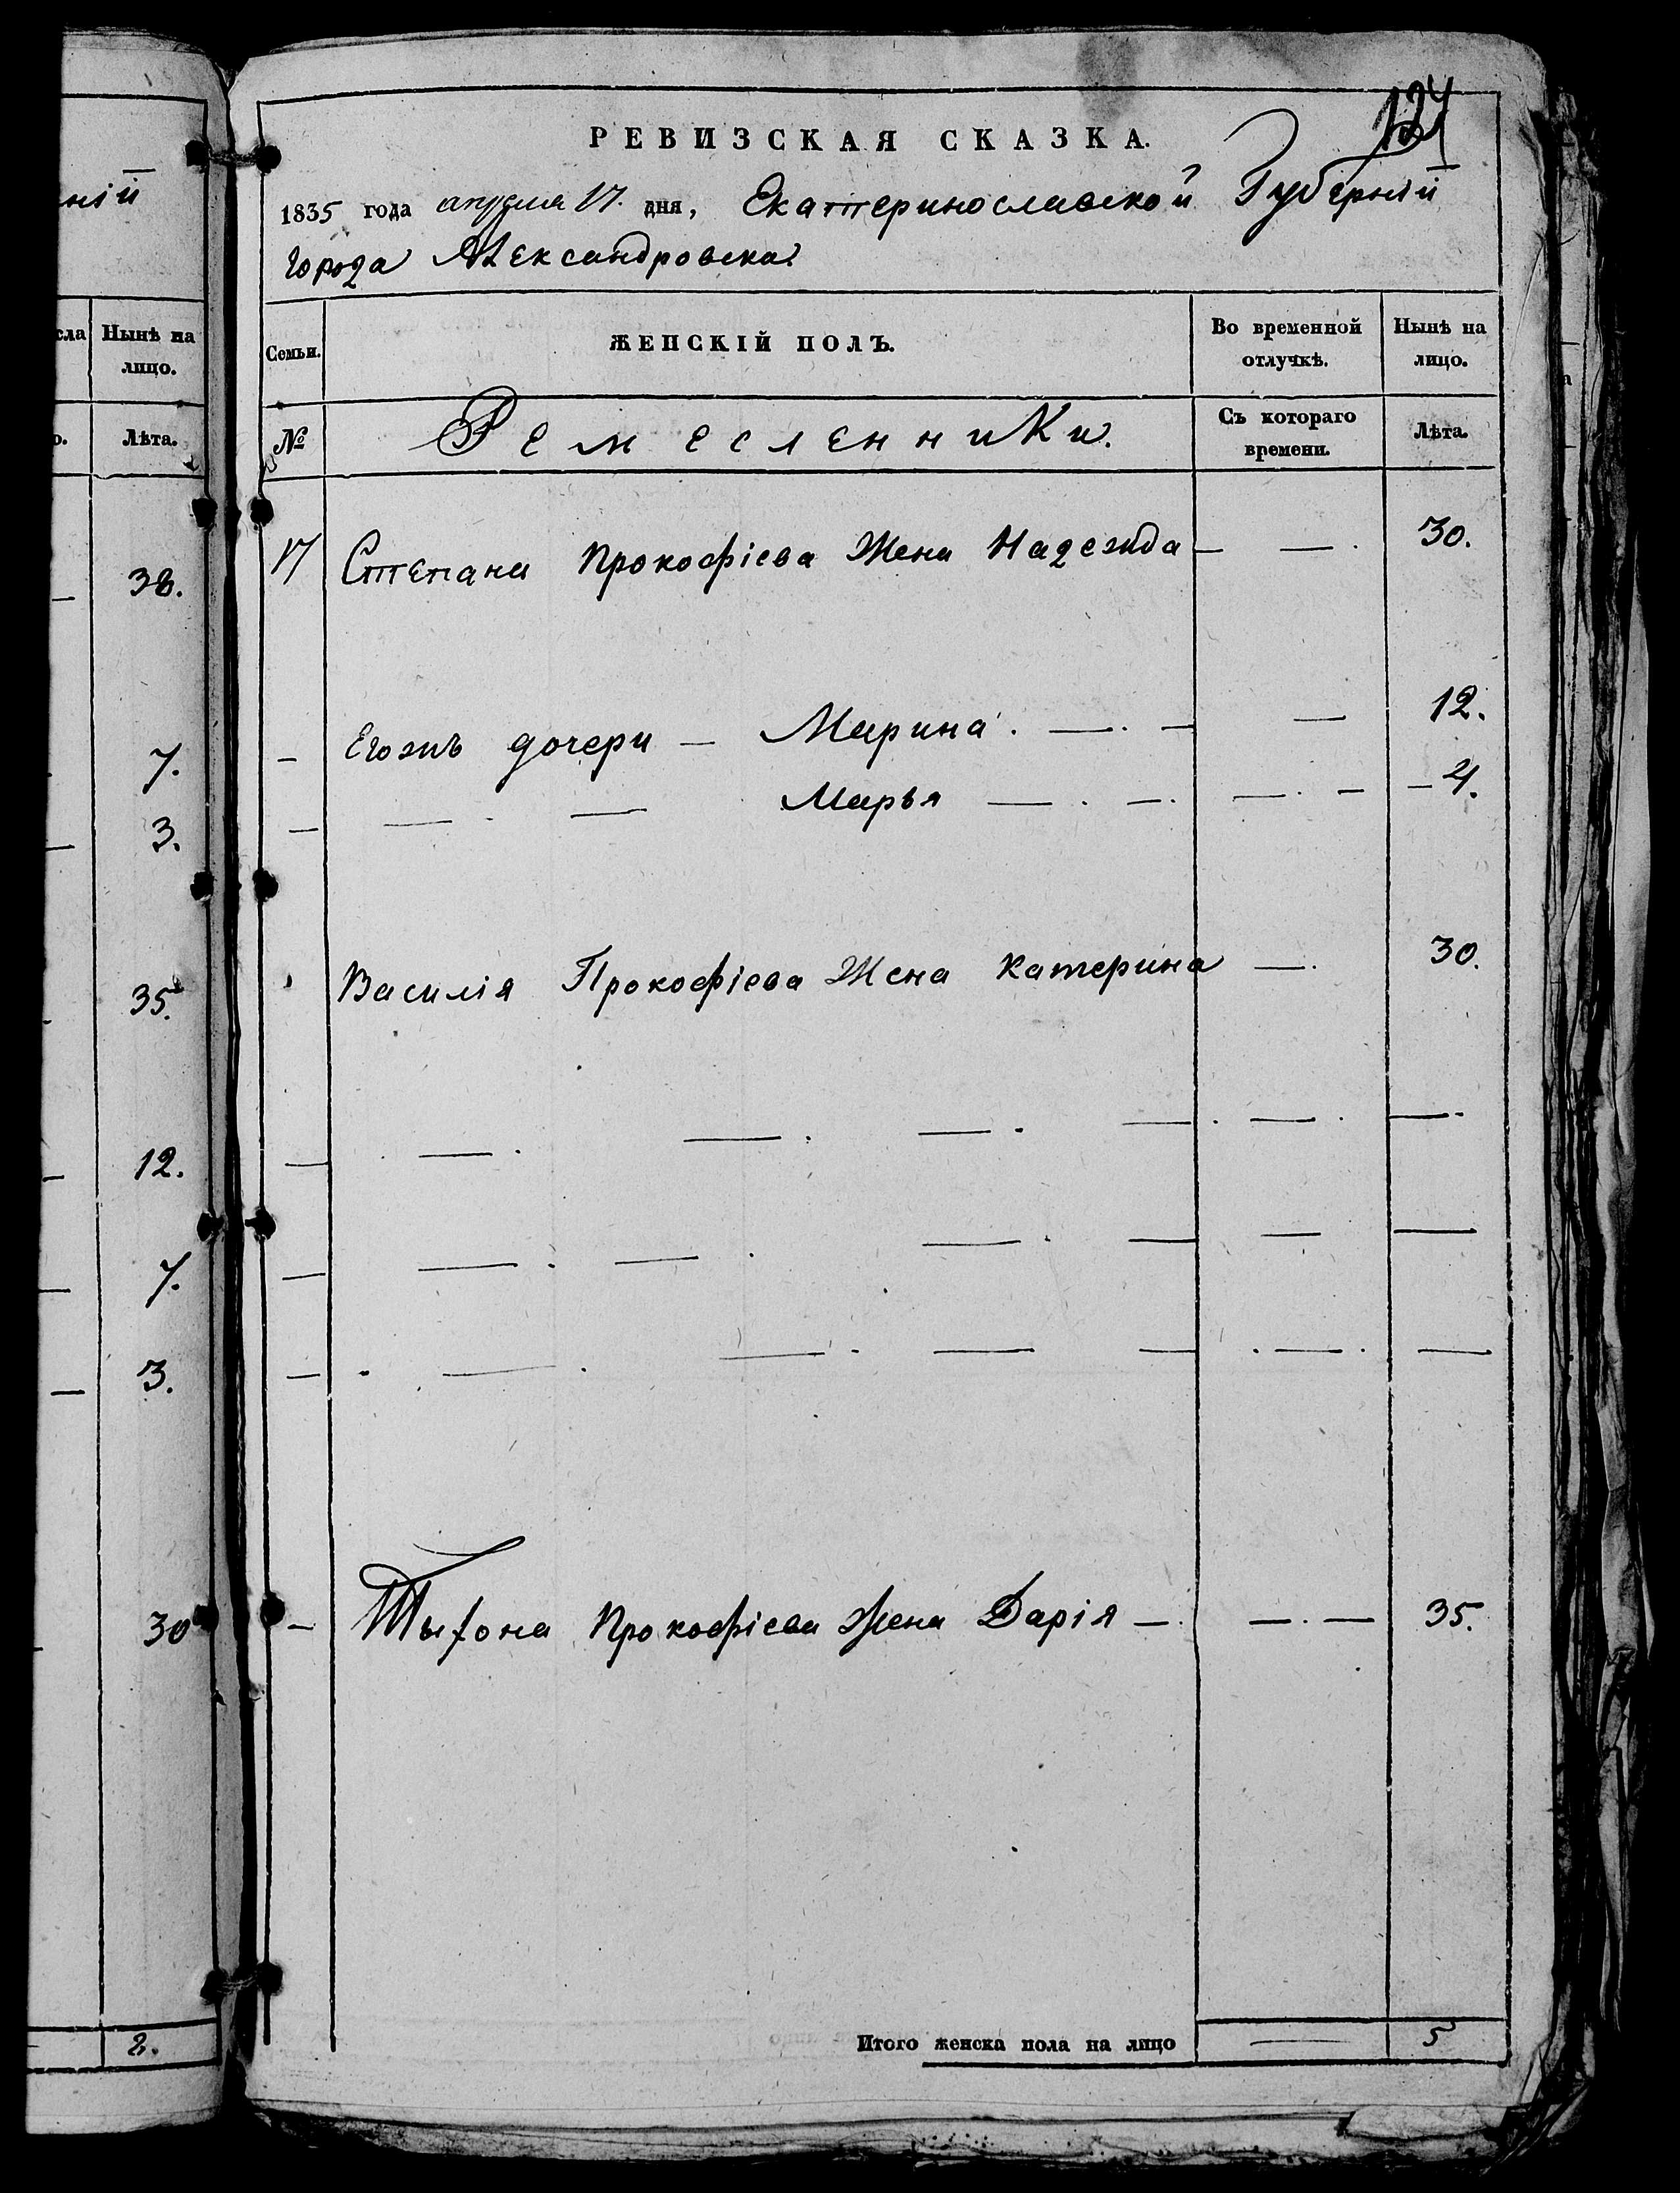 ній
сла Нынѣ на
лицо.
о. Лѣта.
38.
7.
3.
35.
12.
7.
3.
30
2.
124
РЕВИЗСКАЯ СКАЗКА.
1835 года апреля 17. дня, Екатеринославской Губерніи
города Александровска
Семьи. ЖЕНСКІЙ ПОЛЪ. Во временной Нынѣ на
отлучкѣ. лицо.
№ Ремесленники. Съ котораго Лѣта.
времени.
17 Степана Прокофіева Жена Надежда — — . 30.
— Егожъ дочери — Марина . — . — — 12.
— — . — Марья — . — . — . — — 4.
Василія Прокофіева Жена Катерина — . 30.
— — . — . — . — . — . — .
— — . — . — . — — —
— . — . — . — — . — . —
— Тыхона Прокофіева жена Дарія — . — . — 35.
Итого женска пола на лицо — 5